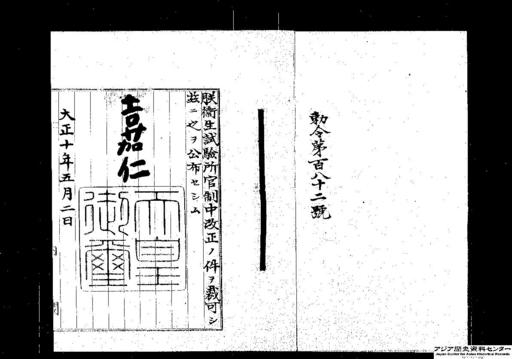 勅令第百八十二號
朕衞生試驗所官制中改正ノ件ヲ裁可シ
茲ニ之ヲ公布セシム
嘉仁
天皇
御璽
大正十年五月二日
アジア歴史資料センター
Japan Center for Asian Historical Records